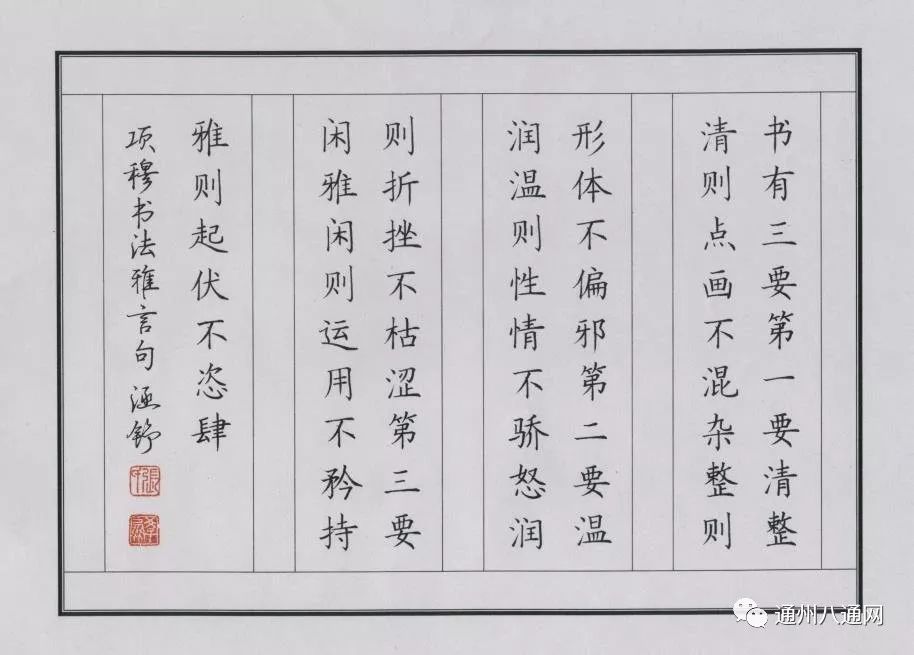 书有三要第一要清整
清则点画不混杂整则
形体不偏邪第二要温
润温则性情不骄怒润
则折挫不枯涩第三要
闲雅闲则运用不矜持
雅则起伏不恣肆
项穆书法雅言句 涵舒
通州八通网